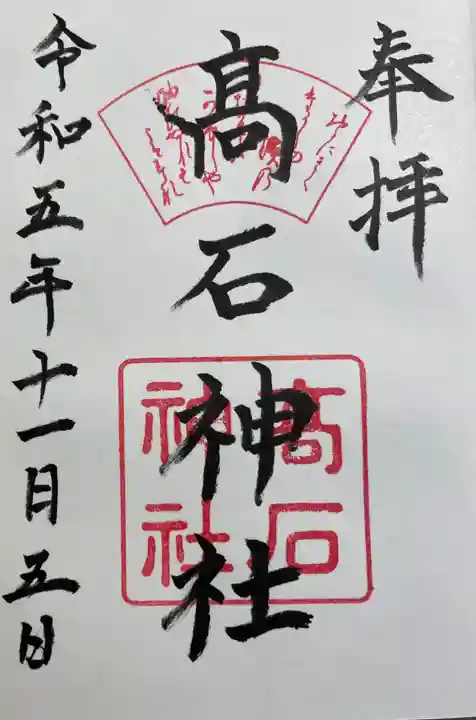 奉拝
髙石神社
髙石
神社
令和五年十一月五日